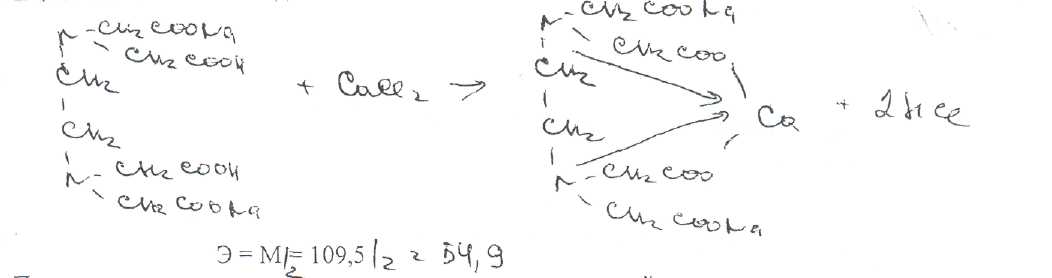 N - CH₂ COONa
CH₂ COOH
CH₂
CH₂
N - CH₂ COOH
CH₂ COONa
+ CaCl₂ →
N - CH₂ COONa
CH₂ COO
CH₂
CH₂
N - CH₂ COO
CH₂ COONa
Ca + 2HCl
Э = M/2 = 109,5/2 = 54,9